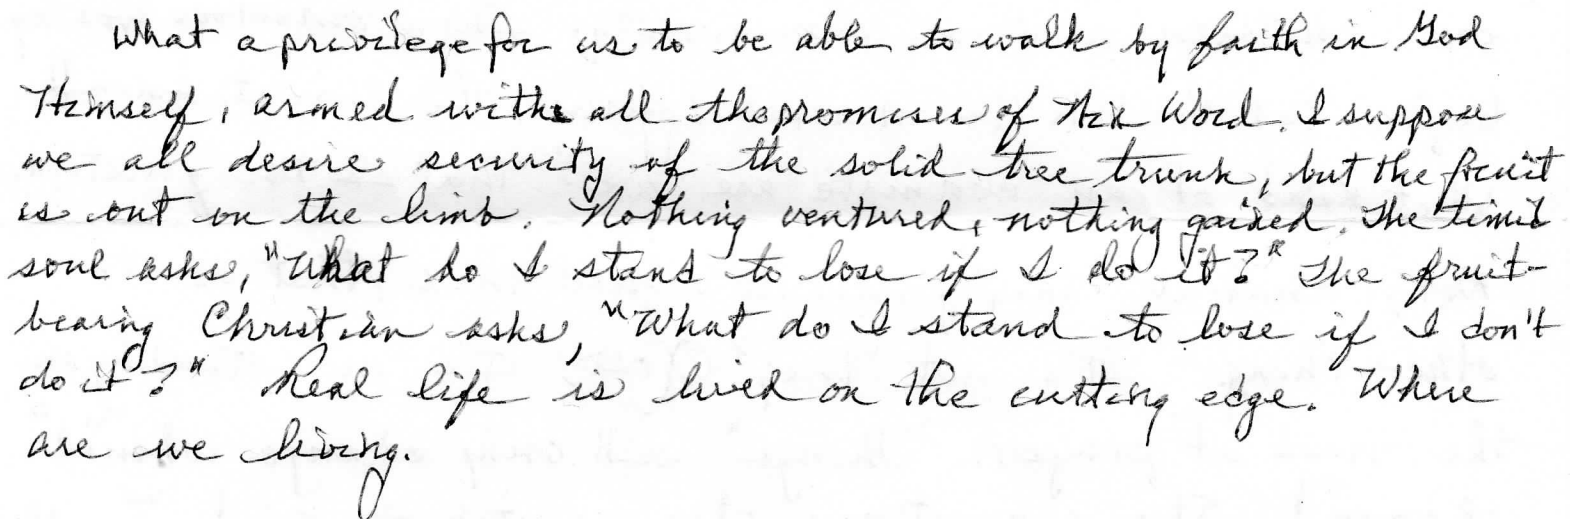 What a privilege for us to be able to walk by faith in God
Himself, armed with all the promises of His Word. I suppose
we all desire security of the solid tree trunk, but the fruit
is out on the limb. Nothing ventured, nothing gained. The timid
soul asks, "What do I stand to lose if I do it?" The fruit-
bearing Christian asks, "What do I stand to lose if I don't
do it?" Real life is lived on the cutting edge. Where
are we living.